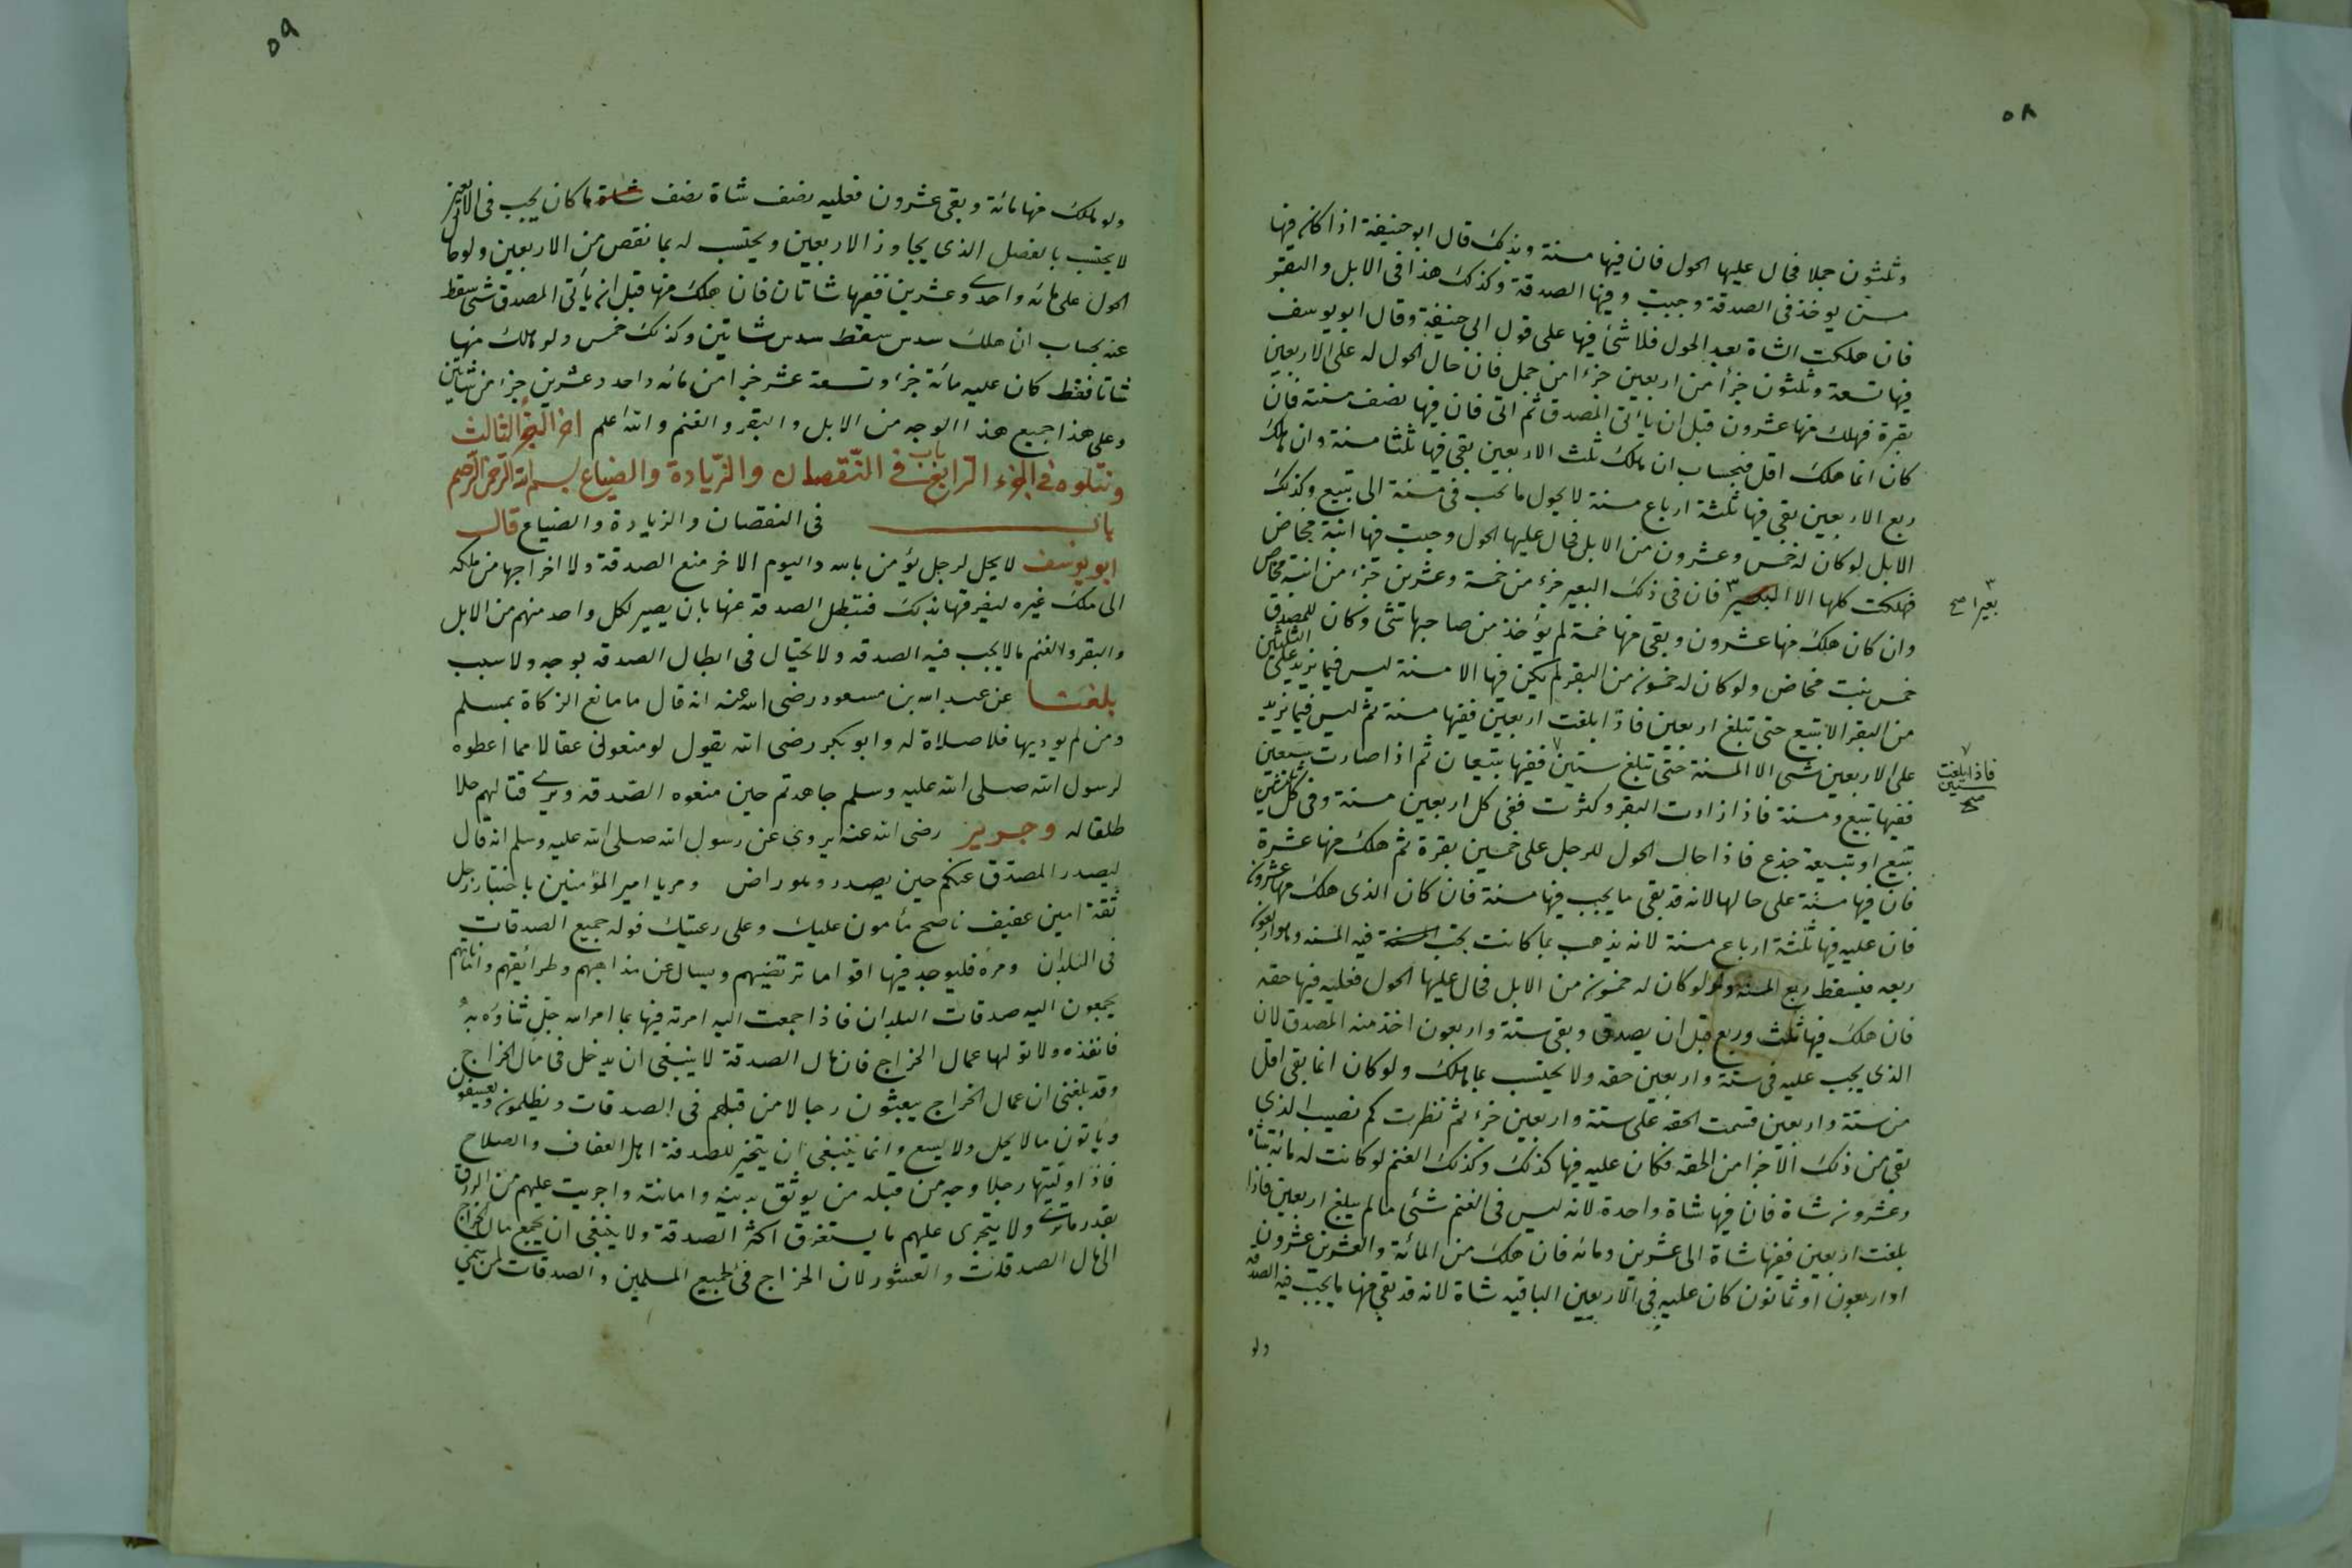 ٥٨
وثلثون جملا فحال عليها الحول فان فيها مسنة وبذلك قال ابو حنيفة اذا كان فيها
مسن يوخذ فى الصدقة وجبت وفيها الصدقة وكذلك هذا فى الابل والبقر
فان هلكت الشاة بعد الحول فلا شئ فيها على قول ابى حنيفة وقال ابو يوسف
فيها تسعة وثلثون جزأ من اربعين جزءا من حمل فان حال الحول له على الاربعين
بقرة فهلك منها عشرون قبل ان ياتى المصدق ثم اتى فان فيها نصف مسنة فان
كان انما هلك اقل فبحساب ان هلك ثلث الاربعين بقى فيها ثلثا مسنة وان هلك
ربع الاربعين بقى فيها ثلثة ارباع مسنة لا يحول ما يجب فى مسنة الى تبيع وكذلك
الابل لو كان له خمس وعشرون من الابل فحال عليها الحول وجبت فيها ابنة مخاض
فهلكت كلها الا البعير ٣ فان فى ذلك البعير جزء من خمسة وعشرين جزء من ابنة مخاض
٣
بعيرا صح
وان كان هلك منها عشرون وبقى منها خمسة لم يؤخذ من صاحبها شئ وكان للمصدق
خمس بنت مخاض ولو كان له خمسون من البقر لم يكن فيها الا مسنة ليس فيما يزيد على الثلثين
من البقر الا تبيع حتى تبلغ اربعين فاذا بلغت اربعين ففيها مسنة ثم ليس فيما يزيد
على الاربعين شئ الا المسنة حتى تبلغ ستين ٧ ففيها تبيعان ثم اذا صارت سبعين
٧
فاذا بلغت
ستين
صح
ففيها تبيع ومسنة فاذا زادت البقر وكثرت ففى كل اربعين مسنة وفى كل ثلثين
تبيع او تبيعة جذع فاذا حال الحول للرجل على خمسين بقرة ثم هلك منها عشرة
فان فيها مسنة على حالها لانه قد بقى ما يجب فيها مسنة فان كان الذى هلك منها عشرون
فان عليه فيها ثلثة ارباع مسنة لانه يذهب بما كانت يجب فيه المسنه وهو اربعون
ربعه فيسقط ربع المسنه ولو كان له خمسون من الابل فحال عليها الحول فعليه فيها حقه
فان هلك فيها ثلث وربع قبل ان يصدق وبقى ستة واربعون اخذ منه المصدق لان
الذى يجب عليه فى ستة واربعين حقه ولا يحتسب بما هلك ولو كان انما بقى اقل
من ستة واربعين قسمت الحقه على ستة واربعين جزء ثم نظرت كم نصيب الذى
بقى من ذلك الاجزا من الحقه فكان عليه فيها كذلك وكذلك الغنم لو كانت له مائة شاة
وعشرون شاة فان فيها شاة واحدة لانه ليس فى الغنم شئ ما لم يبلغ اربعين فاذا
بلغت اربعين ففيها شاة الى عشرين ومائه فان هلك من المائة والعشرين عشرون
او اربعون او ثمانون كان عليه فى الاربعين الباقيه شاة لانه قد بقى منها ما يجب فيه الصدقه
ولو
٥٩
ولو هلك منها مائة وبقى عشرون فعليه نصف شاة نصف ما كان يجب فى الاربعين
لا يحتسب بالفضل الذى يجاوز الاربعين ويحتسب له بما نقص من الاربعين ولو حال
الحول على مائه واحدى وعشرين ففيها شاتان فان هلك منها قبل ان يأتى المصدق شئ سقط
عنه بحساب ان هلك سدس سقط سدس شاتين وكذلك خمس ولو هلك منها
شاتا فقط كان عليه مائة جزء وتسعة عشر جزا من مائه واحد وعشرين جزا من شاتين
وعلى هذا جميع هذا الوجه من الابل والبقر والغنم والله اعلم اخر الجزء الثالث
ونتلوه فى الجزء الرابع باب فى النقصان والزيادة والضياع بسم الله الرحمن الرحيم
باب فى النقصان والزيادة والضياع قال
ابو يوسف لا يحل لرجل يؤمن بالله واليوم الاخر منع الصدقة ولا اخراجها من ملكه
الى ملك غيره ليفرقها بذلك فتبطل الصدقة عنها بان يصير لكل واحد منهم من الابل
والبقر والغنم مالا يجب فيه الصدقه ولا تحتال فى ابطال الصدقه بوجه ولا سبب
بلغنا عن عبد الله بن مسعود رضى الله عنه انه قال ما مانع الزكاة بمسلم
ومن لم يوديها فلا صلاة له وابو بكر رضى الله يقول لو منعونى عقالا مما اعطوه
لرسول الله صلى الله عليه وسلم جاهدتم حين منعوه الصدقه ويرى قتالهم حلا
طلقا له وجرير رضى الله عنه يروى عن رسول الله صلى الله عليه وسلم انه قال
ليصدر المصدق عنكم حين يصدر وهو راض ومر يا امير المؤمنين باختيار رجل
ثقة امين عفيف ناصح مأمون عليك وعلى رعيتك فوله جميع الصدقات
فى البلدان ومره فليوجه فيها اقواما ترتضيهم ويسال عن مذاهبهم وطرائقهم واماناتهم
يجمعون اليه صدقات البلدان فاذا جمعت اليه امرته فيها بما امر الله جل ثناؤه به
فانفذه ولا تولها عمال الخراج فان مال الصدقة لا ينبغى ان يدخل فى مال الخراج
وقد بلغنى ان عمال الخراج يبعثون رجالا من قبلهم فى الصدقات ويظلمون ويعسفون
وياتون مالا يحل ولا يسع وانما ينبغى ان يتخير للصدقة اهل العفاف والصلاح
فاذا وليتها رجلا وجه من قبله من يوثق بدينه وامانته واجريت عليهم من الرزق
بقدر ما ترى ولا يتجرى عليهم ما يستغرق اكثر الصدقة ولا ينبغى ان يجمع مال الخراج
الى مال الصدقات والعشور لان الخراج فئ لجميع المسلمين والصدقات لمن سمى